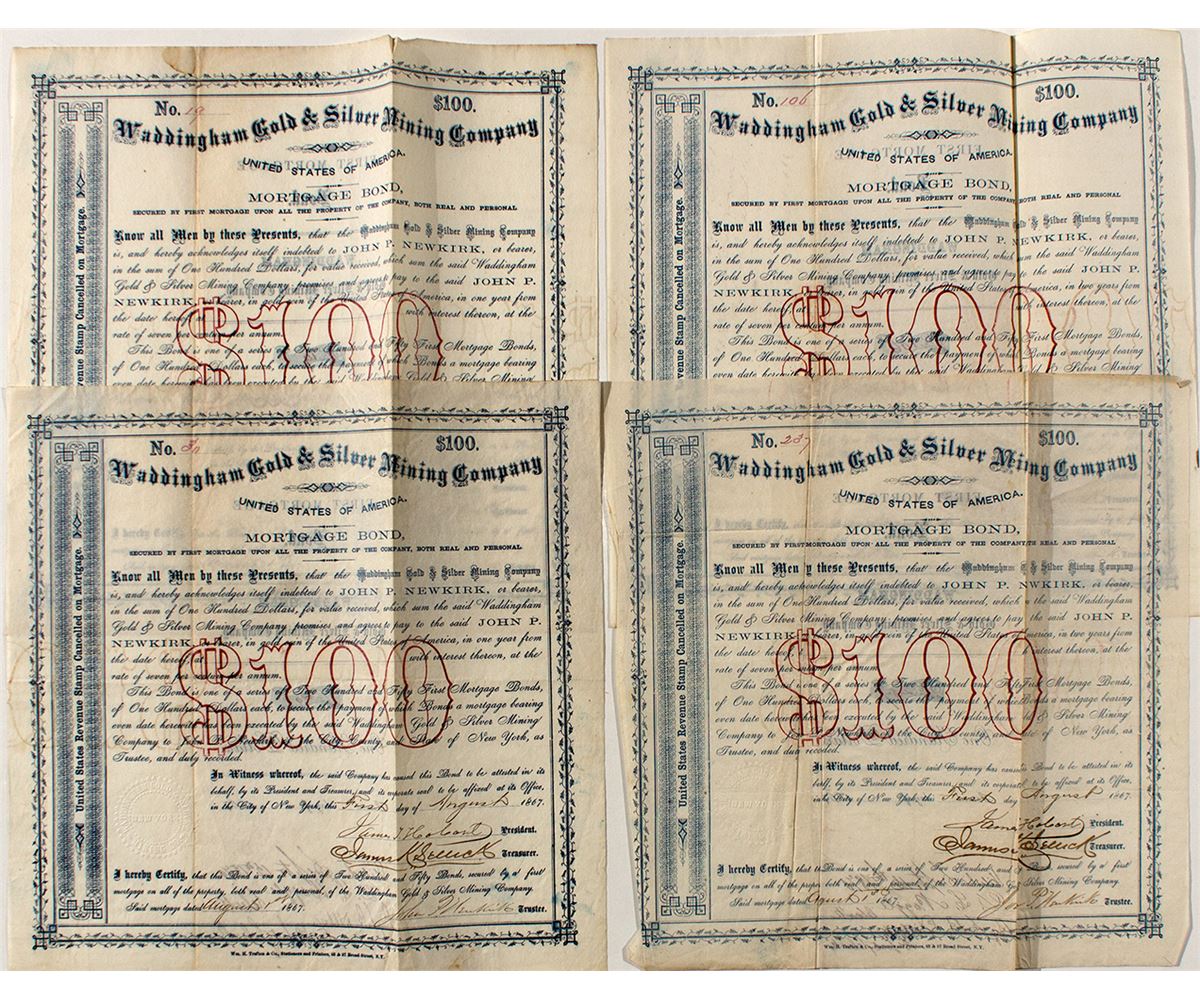 No. 19 $100.
Waddingham Gold & Silver Mining Company
UNITED STATES OF AMERICA.
MORTGAGE BOND,
SECURED BY FIRST MORTGAGE UPON ALL THE PROPERTY OF THE COMPANY, BOTH REAL AND PERSONAL
Know all Men by these Presents, that the Waddingham Gold & Silver Mining Company
is, and hereby acknowledges itself indebted to JOHN P. NEWKIRK, or bearer,
in the sum of One Hundred Dollars, for value received, which sum the said Waddingham
Gold & Silver Mining Company promises and agrees to pay to the said JOHN P.
NEWKIRK, or bearer, in gold coin of the United States of America, in one year from
the date hereof at with interest thereon, at the
rate of seven per centum per annum.
This Bond is one of a series of Two Hundred and Fifty First Mortgage Bonds,
of One Hundred Dollars each, to secure the payment of which Bonds a mortgage bearing
even date herewith has been executed by the said Waddingham Gold & Silver Mining
$100
United States Revenue Stamp Cancelled on Mortgage.
No. 106 $100.
Waddingham Gold & Silver Mining Company
UNITED STATES OF AMERICA.
MORTGAGE BOND,
SECURED BY FIRST MORTGAGE UPON ALL THE PROPERTY OF THE COMPANY, BOTH REAL AND PERSONAL
Know all Men by these Presents, that the Waddingham Gold & Silver Mining Company
is, and hereby acknowledges itself indebted to JOHN P. NEWKIRK, or bearer,
in the sum of One Hundred Dollars, for value received, which sum the said Waddingham
Gold & Silver Mining Company promises and agrees to pay to the said JOHN P.
NEWKIRK, or bearer, in gold coin of the United States of America, in two years from
the date hereof at with interest thereon, at the
rate of seven per centum per annum.
This Bond is one of a series of Two Hundred and Fifty First Mortgage Bonds,
of One Hundred Dollars each, to secure the payment of which Bonds a mortgage bearing
even date herewith has been executed by the said Waddingham Gold & Silver Mining
$100
Revenue Stamp Cancelled on Mortgage.
No. $100.
Waddingham Gold & Silver Mining Company
UNITED STATES OF AMERICA.
MORTGAGE BOND,
SECURED BY FIRST MORTGAGE UPON ALL THE PROPERTY OF THE COMPANY, BOTH REAL AND PERSONAL
Know all Men by these Presents, that the Waddingham Gold & Silver Mining Company
is, and hereby acknowledges itself indebted to JOHN P. NEWKIRK, or bearer,
in the sum of One Hundred Dollars, for value received, which sum the said Waddingham
Gold & Silver Mining Company promises and agrees to pay to the said JOHN P.
NEWKIRK, or bearer, in gold coin of the United States of America, in one year from
the date hereof at with interest thereon, at the
rate of seven per centum per annum.
This Bond is one of a series of Two Hundred and Fifty First Mortgage Bonds,
of One Hundred Dollars each, to secure the payment of which Bonds a mortgage bearing
even date herewith has been executed by the said Waddingham Gold & Silver Mining
Company to John P. Newkirk, of the City, County, and State of New York, as
Trustee, and duly recorded.
$100
In Witness whereof, the said Company has caused this Bond to be attested in its
behalf, by its President and Treasurer, and its corporate seal to be affixed at its Office,
in the City of New York, this First day of August 1867.
James T. Hobart President.
James K Selleck Treasurer.
I hereby Certify, that this Bond is one of a series of Two Hundred and Fifty Bonds, secured by a first
mortgage on all of the property, both real and personal, of the Waddingham Gold & Silver Mining Company.
Said mortgage dated August 1st 1867. John P. Newkirk Trustee.
United States Revenue Stamp Cancelled on Mortgage.
Wm. H. Trafton & Co., Stationers and Printers, 65 & 67 Broad Street, N.Y.
No. 237 $100.
Waddingham Gold & Silver Mining Company
UNITED STATES OF AMERICA.
MORTGAGE BOND,
SECURED BY FIRST MORTGAGE UPON ALL THE PROPERTY OF THE COMPANY, BOTH REAL AND PERSONAL
Know all Men by these Presents, that the Waddingham Gold & Silver Mining Company
is, and hereby acknowledges itself indebted to JOHN P. NEWKIRK, or bearer,
in the sum of One Hundred Dollars, for value received, which sum the said Waddingham
Gold & Silver Mining Company promises and agrees to pay to the said JOHN P.
NEWKIRK, or bearer, in gold coin of the United States of America, in two years from
the date hereof at with interest thereon, at the
rate of seven per centum per annum.
This Bond is one of a series of Two Hundred and Fifty First Mortgage Bonds,
of One Hundred Dollars each, to secure the payment of which Bonds a mortgage bearing
even date herewith has been executed by the said Waddingham Gold & Silver Mining
Company to John P. Newkirk, of the City, County, and State of New York, as
Trustee, and duly recorded.
$100
In Witness whereof, the said Company has caused this Bond to be attested in its
behalf, by its President and Treasurer, and its corporate seal to be affixed at its Office,
in the City of New York, this First day August 1867.
James T Hobart President.
James K Selleck Treasurer.
I hereby Certify, that this Bond is one of a series of Two Hundred and Fifty Bonds, secured by a first
mortgage on all of the property, both real and personal, of the Waddingham Gold & Silver Mining Company.
Said mortgage dated August 1st 1867. Jno. P. Newkirk Trustee.
United States Revenue Stamp Cancelled on Mortgage.
Wm. H. Trafton & Co., Stationers and Printers, 65 & 67 Broad Street, N.Y.